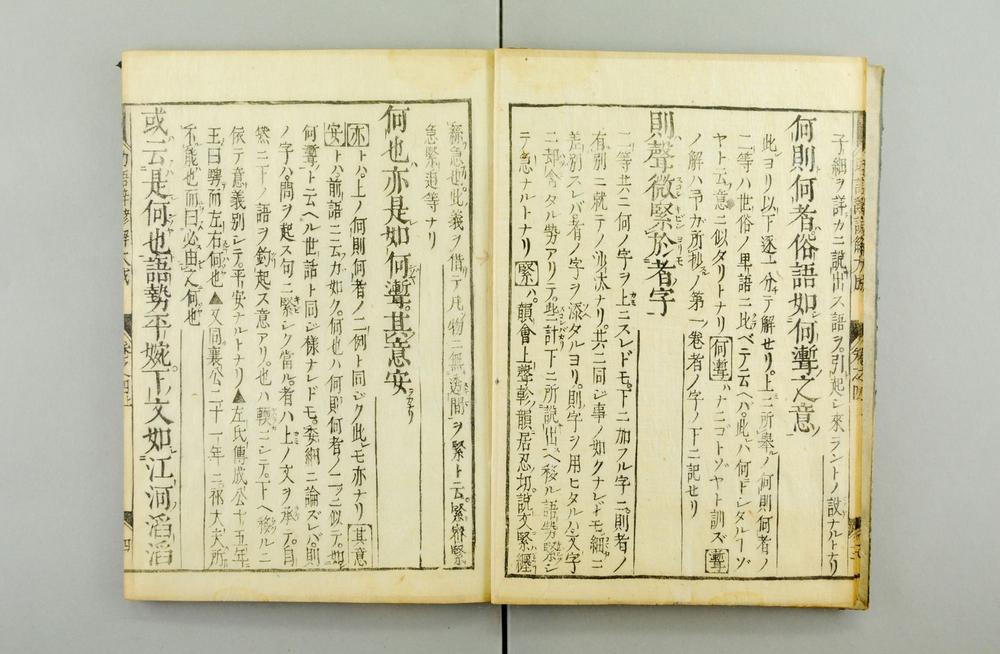 子細ヲ詳カニ説出ス語ヲ引起シ來ラントノ設ナルトナリ
何則何者俗語如何聾之意
此ヨリ以下逐一分テ解セリ上ニ所擧ノ何則何者ノ
二等ハ世俗ノ里語ニ比ベテ云ヘバ此ハ何ドシタルーゾ
ヤト云意ニ似タリトナリ何聾ハナニコトゾヤト訓ズ聾
ノ解ハ予ガ所抄ノ第一卷者ノ字ノ下ニ記セリ
則聲微緊於者字
二等共ニ何ノ字ヲ上ニスレドモ下ニ加フル字ニ則者ノ
有別ニ就テノ沙汰ナリ共ニ同シ事ノ如クナレドモ細ニ
差別スレバ者ノ字ヲ添タルヨリ則字ヲ用ヒタルハ文字
ニ却含タル勢アリテ些計下ニ所説出ヘ移ル語勢緊シ
テ急ナルトナリ緊ハ韻會上聲軫韻居忍切説文緊纏
絲急也此義ヲ借テ凡ソ物ニ無透間ヲ緊ト云緊密緊
急緊迫等ナリ
何也亦是如何聾其意安
亦トハ上ノ何則何者ノ二例ト同ジク此モ亦ナリ其意
安トハ前語ニ云カ如ク何也ハ何則何者ノ二ツニ似テ如
何聾ト云ヘル世話ト同シ樣ナレドモ委細ニ論ズレバ則
ノ字ハ問ヲ起ス句ニ緊シク當ル者ハ上ノ文ヲ承テ自
然ニ下ノ語ヲ釣起ス意アリ也ハ輭ニシテ下ヘ移ルニ
依テ意義別シテ平安ナルトナリ▲左氏傳成公十五年
王曰騁而左右何也▲又同襄公二十一年ニ祁大夫所
不能也而曰必由之何也
或云是何也語勢平婉上文如江河滔滔